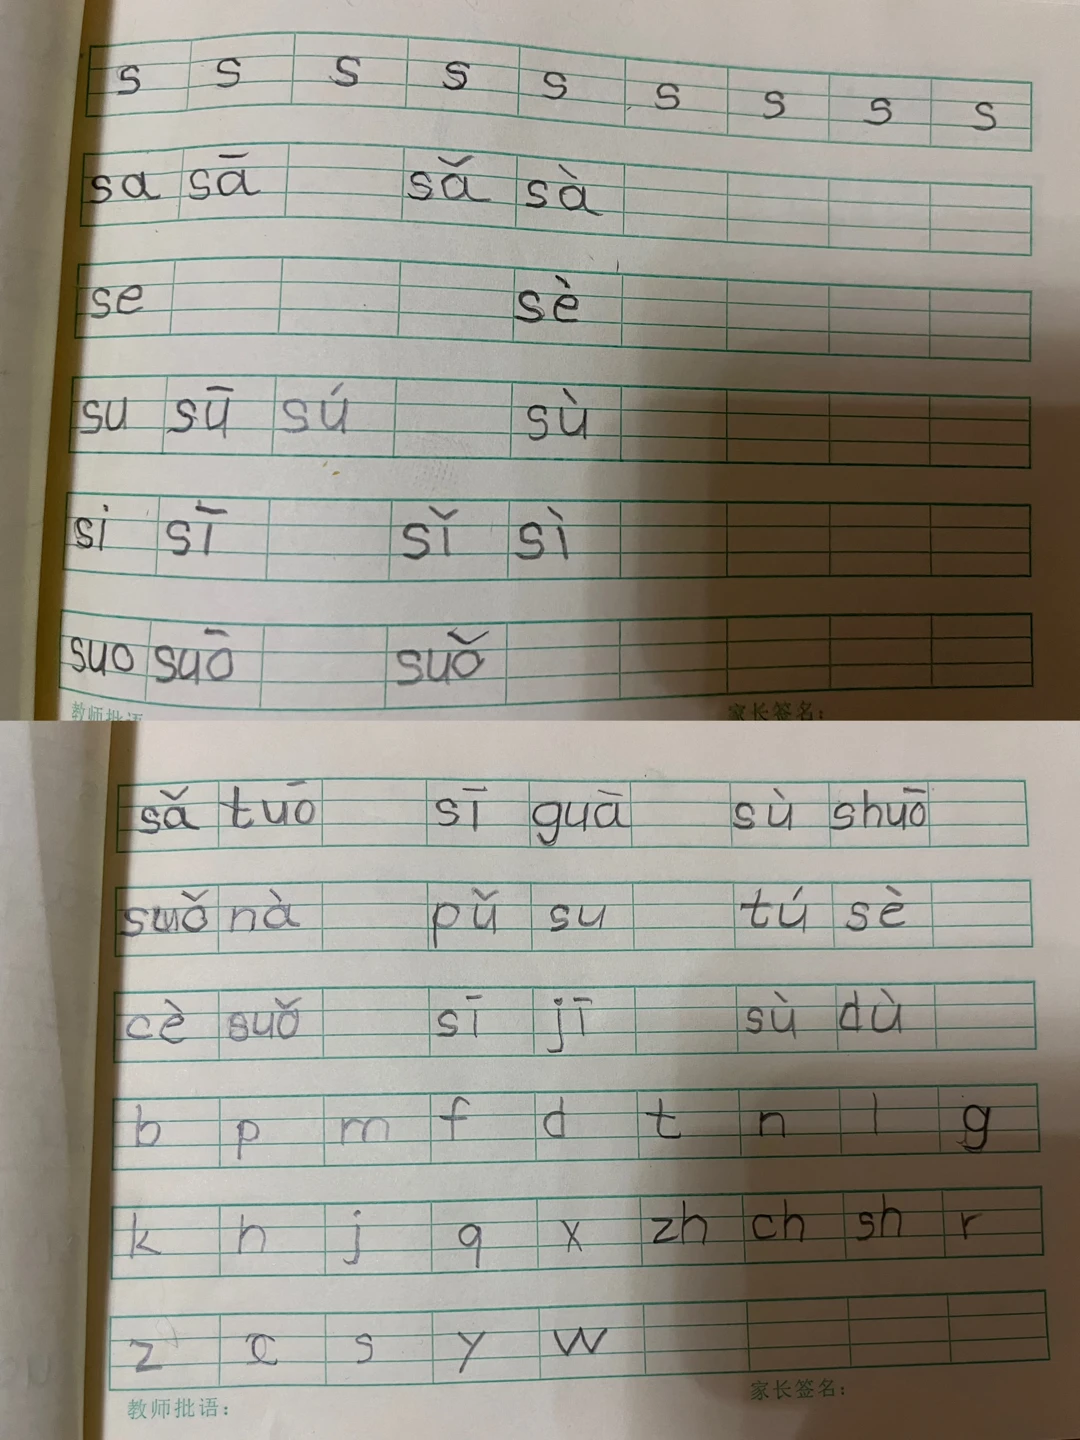 s s s s s s s s s
sa sā sǎ sà
se sè
su sū sú sù
si sī sǐ sì
suo suō suǒ
教师批语 家长签名：
sǎ tuō sī guā sù shuō
suǒ nà pǔ su tú sè
cè suǒ sī jī sù dù
b p m f d t n l g
k h j q x zh ch sh r
z c s y w
教师批语： 家长签名：